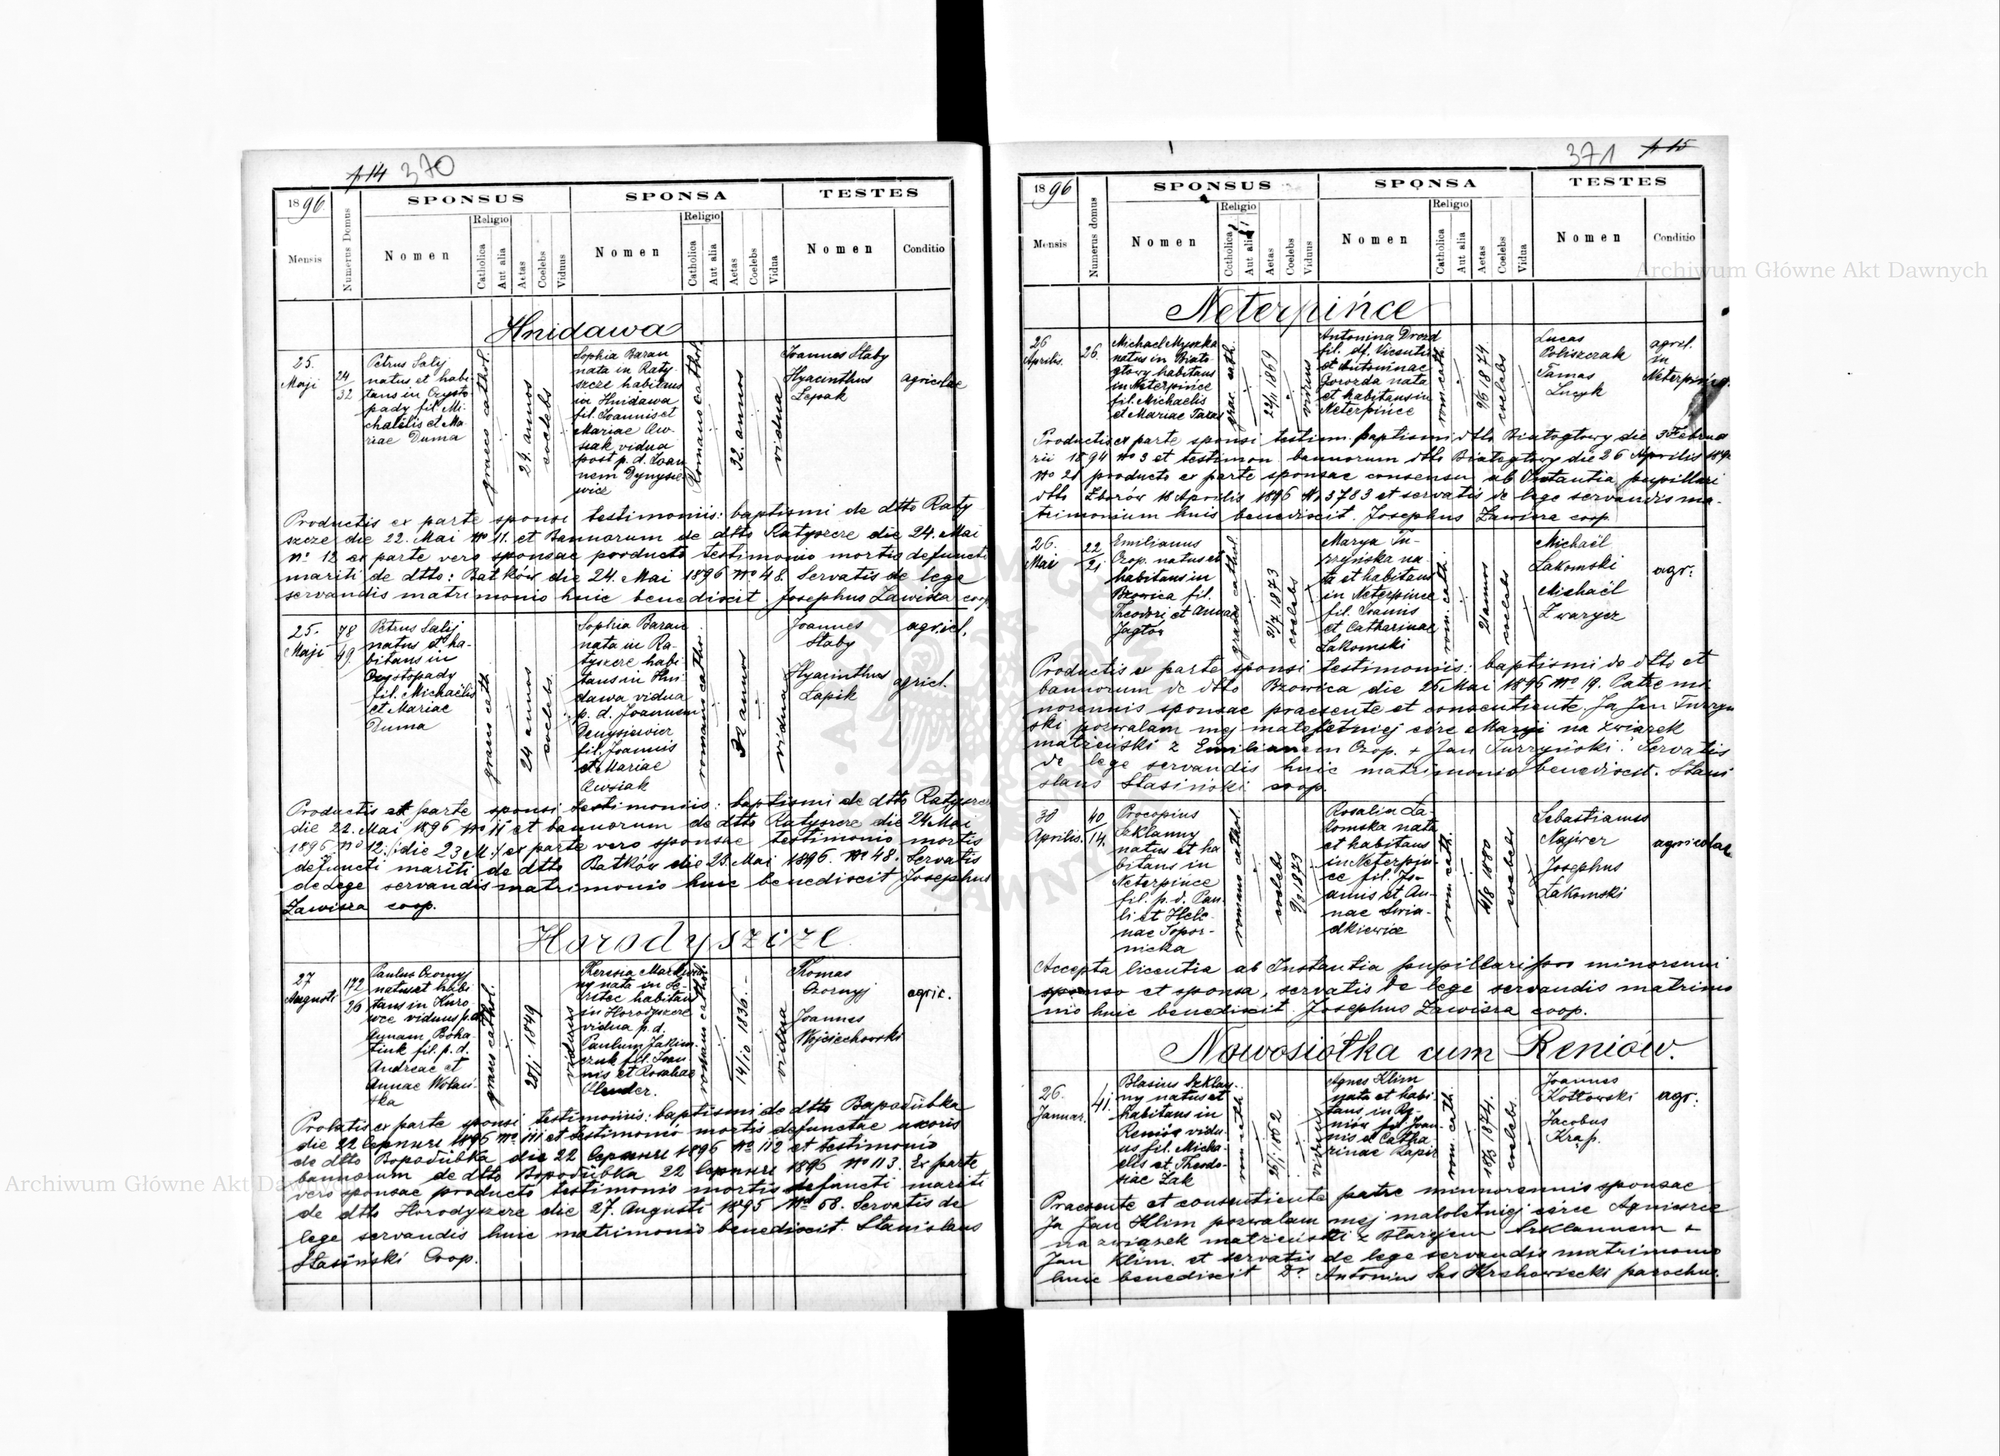 p 14 370
1896.
SPONSUS
SPONSA
TESTES
Mensis
Numerus Domus
Nomen
Religio
Catholica
Aut alia
Aetas
Coelebs
Viduus
Nomen
Religio
Catholica
Aut alia
Aetas
Coelebs
Vidua
Nomen
Conditio
Hnidawa
25.
Maji
24
32
Petrus Salij
natus et habi-
tans in Czysto-
pady fil. Mi-
chaëlis et Ma-
riae Duma
graeco cathol.
24. annos
coelebs
Sophia Baran
nata in Raty-
szcze habitans
in Hnidawa
fil. Joannis et
Mariae Ow-
siak vidua
post p. d. Joan
nem Dynysie-
wicz
Romano cathol.
32. annos
vidua
Joannes Słaby
Hyacinthus
agricolae
Productis ex parte sponsi testimoniis: baptismi de dtto Raty
szcze die 22. Mai Nº 11. et Bannorum de dtto Ratyszcze die 24. Mai
Nº 12 ex parte vero sponsae producto testimonio mortis defuncti
mariti de dtto: Batków die 24. Mai 1896 Nº 48. Servatis de lege
servandis matrimonio huic benedixit. Josephus Zawisza coop
25.
Maji
78
49.
Petrus Salij
natus et ha-
bitans in
Czystopady
fil. Michaëlis
et Mariae
Duma
graeco cath
24 annos
coelebs.
Sophia Baran
nata in Ra-
tyszcze habi
tans in Hni
dawa vidua
p. d. Joannem
Denysiewicz
fil. Joannis
et Mariae
Owsiak
romano catho
32 annos
vidua
Joannes
Słaby
Hyacinthus
Łapik
agricl.
agricl.
Productis ex parte sponsi testimoniis: baptismi de dtto Ratyszcze
die 22. Mai 1896 Nº 11 et bannorum de dtto Ratyszcze die 24 Mai
1896 Nº 12. /:die 23 M:/ ex parte vero sponsae testimonio mortis
defuncti mariti de dtto Batków die 23. Mai 1896. Nº 48. Servatis
de lege servandis matrimonio huic benedixit Josephus
Zawisza coop.
Horodyszcze
27
Augusti
172
26
Paulus Czornyj
natus et habi
tans in Kuro
wce viduus p. d.
Annam Boha
tiuk fil. p. d.
Andreae et
Annae Wolań-
ska
graeco cathol.
25/1 1849
viduus
Theresia
ny nata in
habitans
in Horodyszcze
vidua p. d.
Paulum Jakim-
czuk fil. Joan-
nis et Rosaliae
romano cathol.
14/10 1836.-
vidua
Thomas
Czornyj
Joannes
Wojciechowski
agric.
Probatis ex parte sponsi testimoniis: baptismi de dtto
die 22 1896 Nº 111 et testimonio mortis defunctae uxoris
de dtto die 22 1896 Nº 112 et testimonio
bannorum de dtto 22 1896 Nº 113. Ex parte
vero sponsae producto testimonio mortis defuncti mariti
de dtto Horodyszcze die 27. Augusti 1895 Nº 68. Servatis de
lege servandis huic matrimonio benedixit Stanislaus
Stasiński Coop.
371 p 15
1896
SPONSUS
SPONSA
TESTES
Mensis
Numerus domus
Nomen
Religio
Catholica
Aut alia
Aetas
Coelebs
Viduus
Nomen
Religio
Catholica
Aut alia
Aetas
Coelebs
Vidua
Nomen
Conditio
Neterpińce
26
Aprilis
26.
Michael Myszka
natus in Biało-
głowy habitans
in Neterpińce
fil. Michaelis
et Mariae Taras
graec. cath.
22/11 1869
viduus
Antonina Drozd
fil. df. Vicentii
et Antoninae
Gorozda nata
et habitans in
Neterpińce
rom. cath.
9/6 1874.
coelebs
Lucas
Poliszczak
Tomas
Lucyk
agricl.
in
Neterpińce.
Productis ex parte sponsi testim. baptismi dtto Białogłowy die 3 Februa
rii 1894 Nº 3 et testimon bannorum dtto Białogłowy die 26 Aprilis 1896
Nº 21 producto ex parte sponsae consensu ab Instantia pupillari
dtto Zborów 18 Aprilis 1896 Nº 3783 et servatis de lege servandis ma-
trimonium huis benedixit. Josephus Zawisza coop.
26.
Mai
22
21
Emilianus
Czop. natus et
habitans in
Bzowica fil.
Theodori et Annae
Jagtor
graeco cathol
21/7 1873
coelebs
Marya Tu-
rzyńska na-
ta et habitans
in Neterpińce
fil. Joannis
et Catharinae
Łakomski
rom. cath.
21 annos
coelebs
Michaël
Łakomski
Michaël
Zwarycz
agr.
Productis ex parte sponsi testimoniis: baptismi de dtto et
bannorum de dtto Bzowica die 25 Mai 1896 Nº 19. Patre mi
norennis sponsae praesente et consentiente. Ja Jan Turzyń
ski pozwalam mej małoletniej córce Maryi na związek
małżeński z Emilianem Czop. + Jan Turzyński. Servatis
de lege servandis huic matrimonio benedixit. Stani
slaus Stasiński coop.
30
Aprilis.
40
14.
Procopius
Szklanny
natus et ha
bitans in
Neterpińce
fil. p. d. Pau-
li et Hele-
nae Topor-
nicka
romano cathol.
coelebs
9/3 1873
Rosalia Ła-
komska nata
et habitans
in Neterpiń-
ce fil. Jo-
annis et An-
nae Świa-
dkiewicz
rom cath.
4/8 1880
coelebs
Sebastianus
Najwer
Josephus
Łakomski
agricolae
Accepta licentia ab Instantia pupillari pro minorenni
sponso et sponsa, servatis de lege servandis matrimo
nio huic benedixit. Josephus Zawisza coop.
Nowosiółka cum Reniów.
26.
Januar.
41.
Blasius Szklan-
ny natus et
habitans in
Reniów vidu-
us fil. Micha-
elis et Theodo-
siae Żak
rom cath.
viduus
Agnes Klim
nata et habi
tans in Re-
niów fil. Joan-
nis et Catha
rinae Kapir
rom. cath.
18/3 1874.
coelebs.
Joannes
Kozłowski
Jacobus
Krap.
agr.
Praesente et consentiente patre minnorennis sponsae
Ja Jan Klim pozwalam mej małoletniej córce Agnieszce
na związek małżeński z Błażejem Szklannem +
Jan Klim. et servatis de lege servandis matrimonio
huic benedixit Dr Antonius Sas Krechowiecki parochus.
Archiwum Główne Akt Dawnych
Archiwum Główne Akt Dawnych